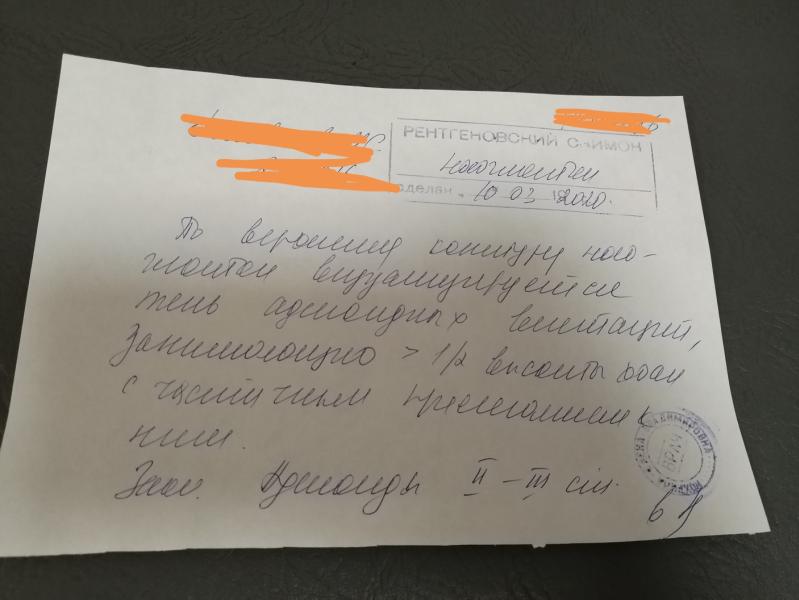 РЕНТГЕНОВСКИЙ СНИМОК
носоглотки
сделан 10 03 2020.
По верхнему контуру носо-
глотки визуализируется
тень аденоидных вегетаций,
занимающую > 1/2 высоты хоан
с частичным
ним.
Закл. Аденоиды II – III ст.
ВЛАДИМИРОВНА
ВРАЧ